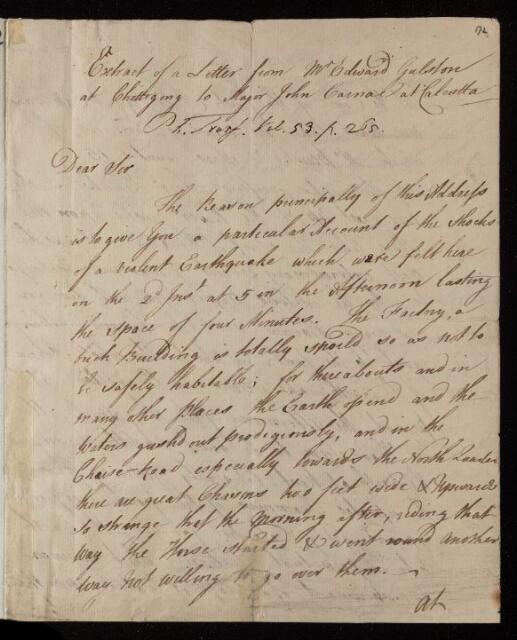 Extract of a Letter from Mr Edward Gulston
at Chittigong to Major John Carnac at Calcutta
Ph. Trans. Vol. 53. p. 265.
Dear Sir
The Reason principally of this Address
is to give You a particular Account of the Shocks
of a violent Earthquake which were felt here
on the 2d Inst at 5 in the Afternoon lasting
the space of four Minutes. The Factory, a
Brick Building is totally spoild so as not to
be safely habitable; for thereabouts and in
many other Places the Earth opend and the
Waters gushd out prodigiously, and in the
Chaise-Road especially towards the North
there are great Chasms two feet wide & Upwards
so strange that the Morning after, riding that
way the Horse started & went round another
way not willing to go over them. —
at